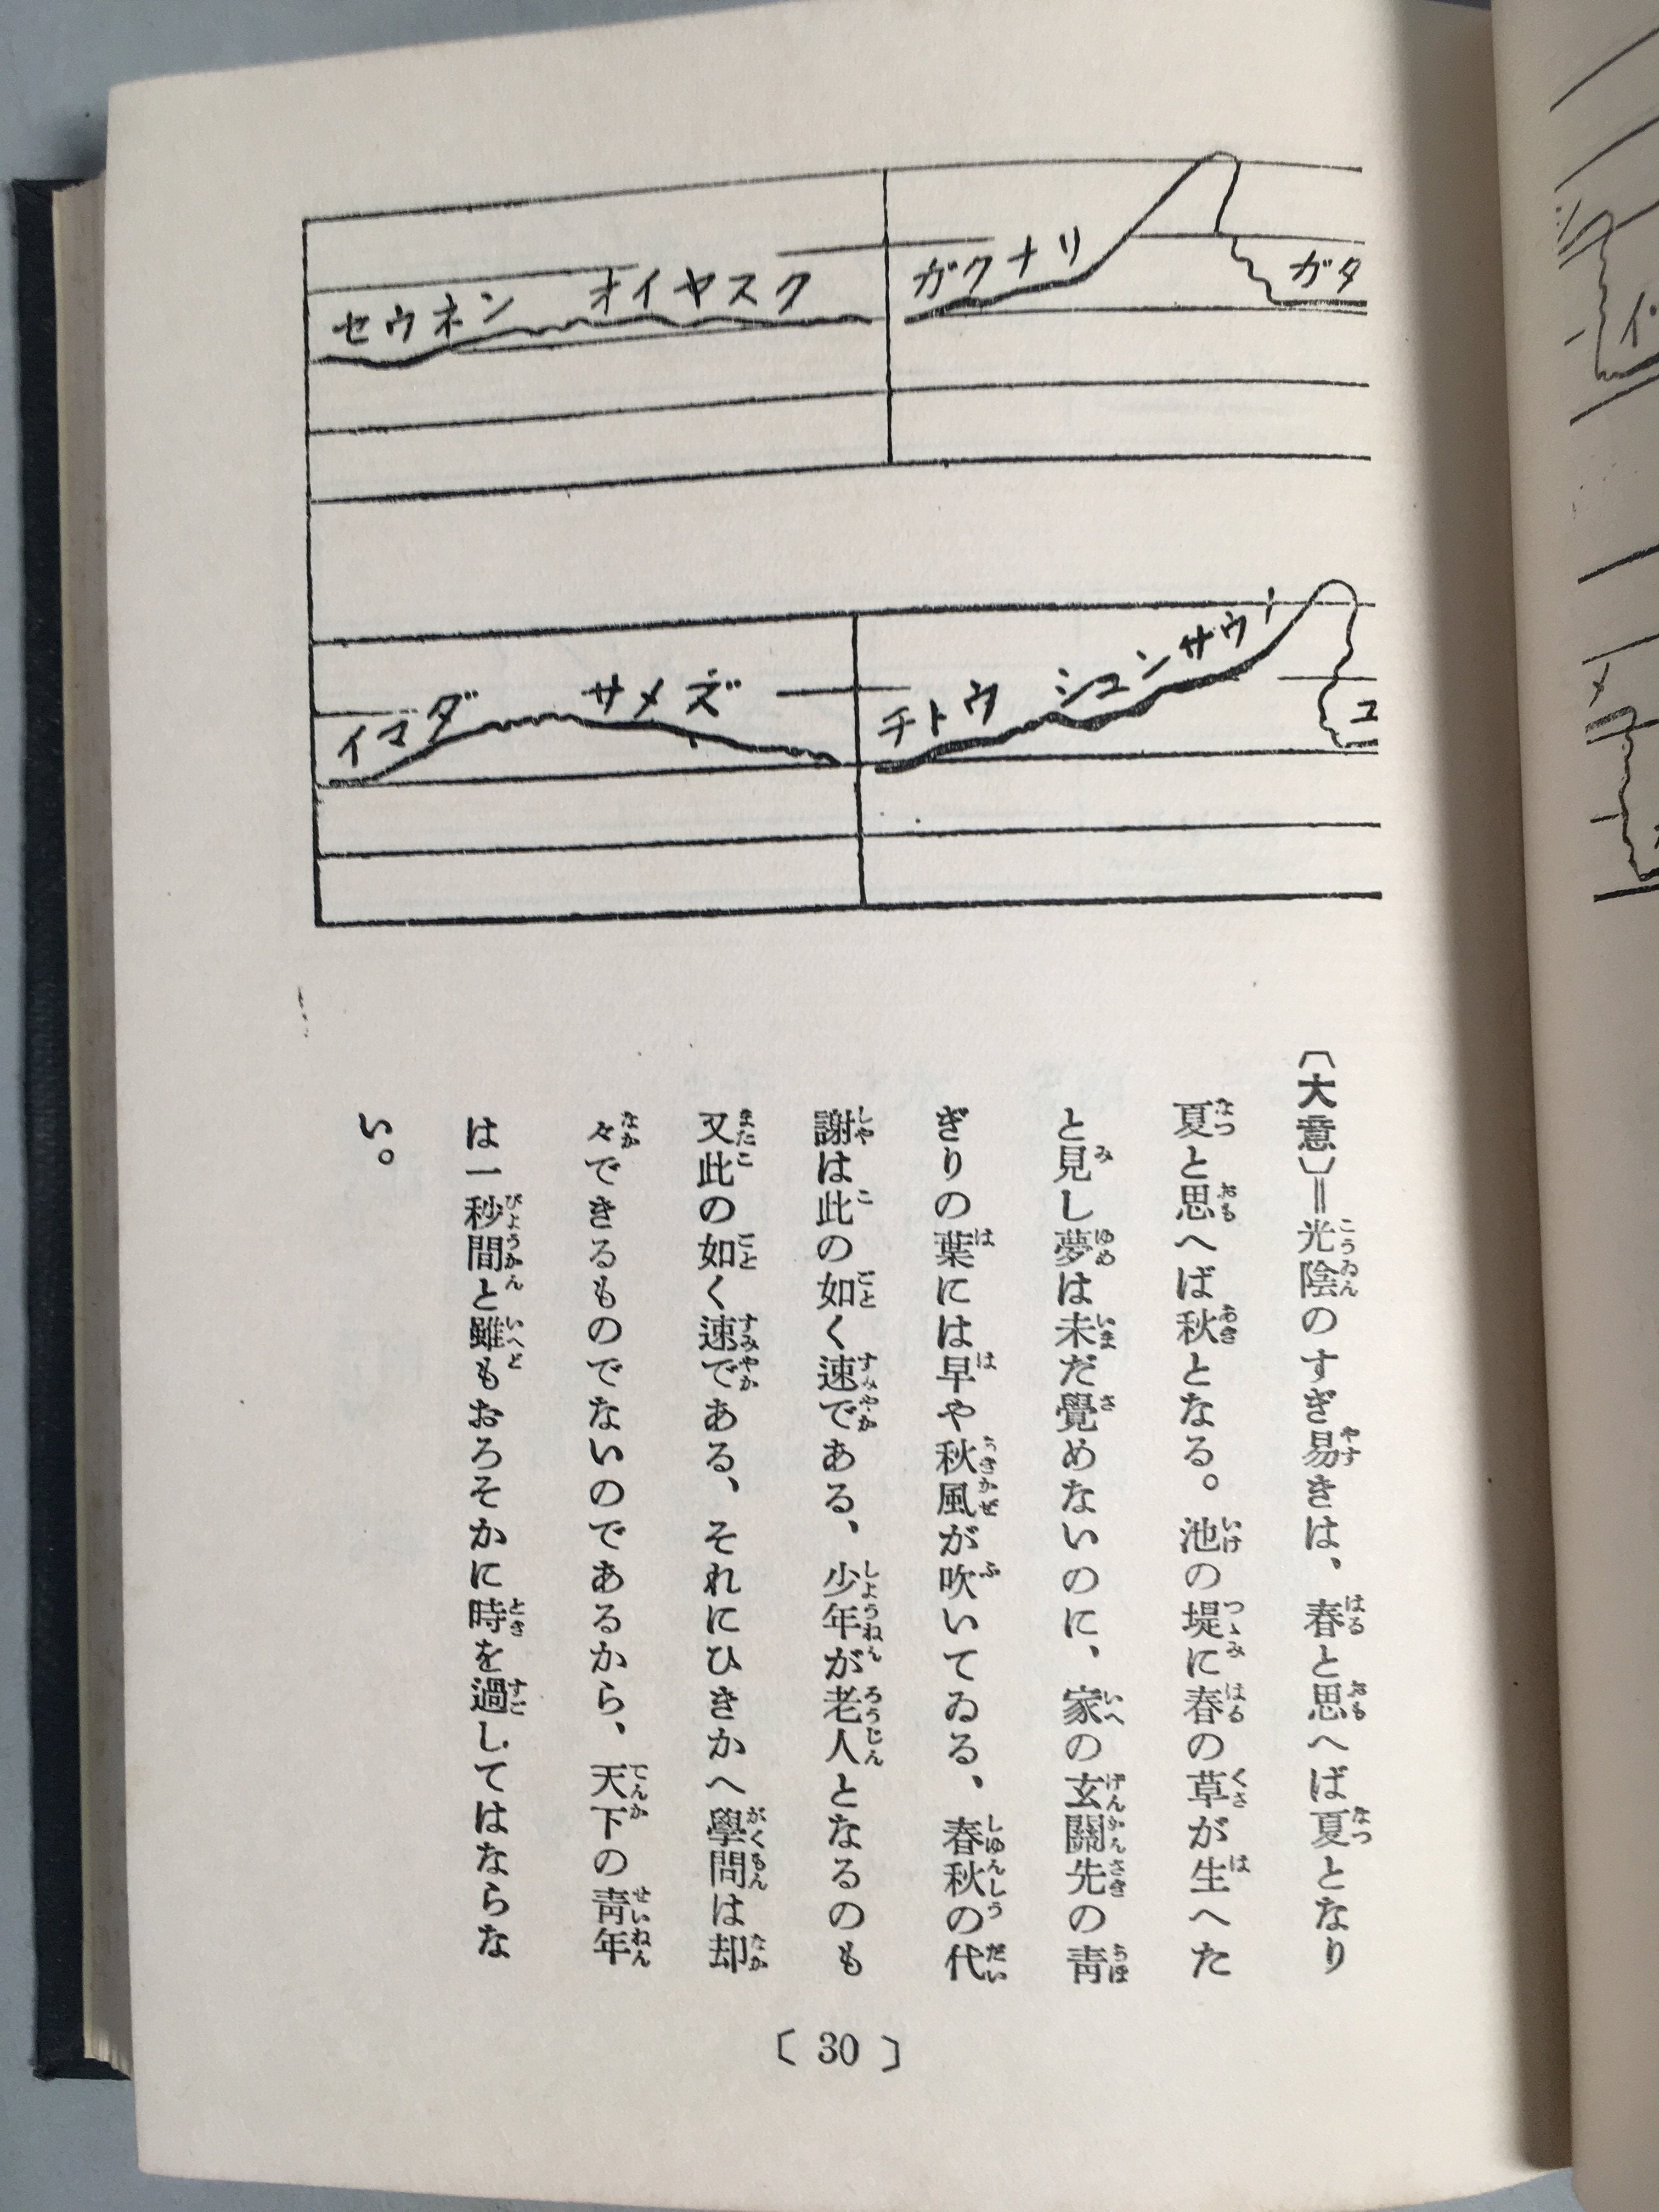 セウネン オイヤスク ガクナリ ガタ
イマダ サメズ チトウ シュンサウノ ユ
〔大意〕＝光陰のすぎ易きは、春と思へば夏となり
夏と思へば秋となる。池の堤に春の草が生へた
と見し夢は未だ覺めないのに、家の玄關先の靑
ぎりの葉には早や秋風が吹いてゐる、春秋の代
謝は此の如く速である、少年が老人となるのも
又此の如く速である、それにひきかへ學問は却
々できるものでないのであるから、天下の靑年
は一秒間と雖もおろそかに時を過してはならな
い。
〔 30 〕